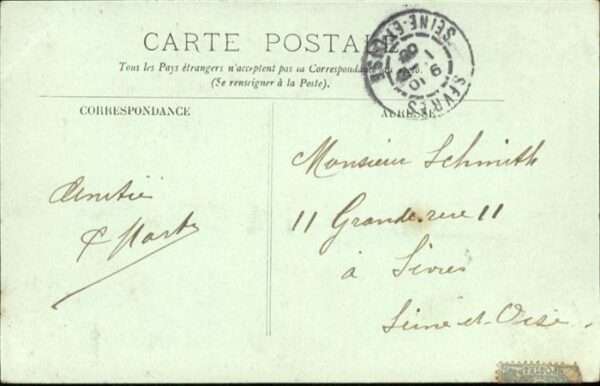 CARTE POSTALE
Tous les Pays étrangers n'acceptent pas la Correspondance au
(Se renseigner à la Poste).
CORRESPONDANCE
ADRESSE
SÈVRES
SEINE-ET-OISE
Amitié
Monsieur Schmith
11 Grande-rue 11
à Sèvres
Seine-et-Oise.